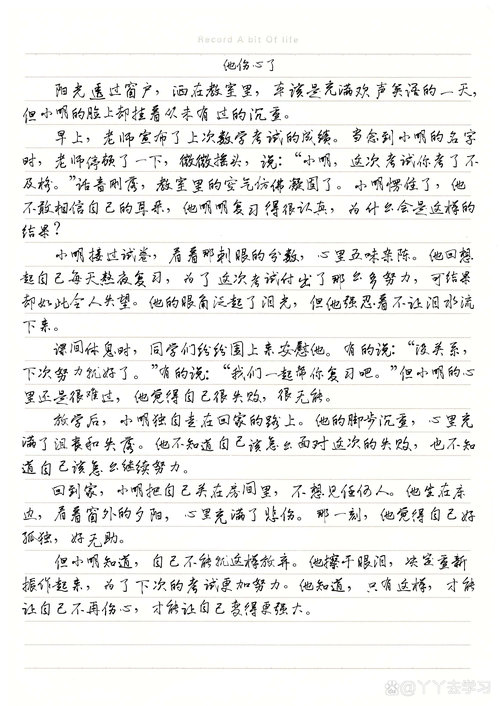 Record A bit Of life
他伤心了
阳光透过窗户，洒在教室里，本该是充满欢声笑语的一天，
但小明的脸上却挂着从未有过的沉重。
早上，老师宣布了上次数学考试的成绩。当念到小明的名字
时，老师停顿了一下，微微摇头，说：“小明，这次考试你考了不
及格。”话音刚落，教室里的空气仿佛凝固了。小明愣住了，他
不敢相信自己的耳朵，他明明复习得很认真，为什么会是这样的
结果？
小明接过试卷，看着那刺眼的分数，心里五味杂陈。他回想
起自己每天熬夜复习，为了这次考试付出了那么多努力，可结果
却如此令人失望。他的眼角泛起了泪光，但他强忍着不让泪水流
下来。
课间休息时，同学们纷纷围上来安慰他。有的说：“没关系，
下次努力就好了。”有的说：“我们一起帮你复习吧。”但小明的心
里还是很难过，他觉得自己很失败，很无能。
放学后，小明独自走在回家的路上。他的脚步沉重，心里充
满了沮丧和失落。他不知道自己该怎么面对这次的失败，也不知
道自己该怎么继续努力。
回到家，小明把自己关在房间里，不想见任何人。他坐在床
边，看着窗外的夕阳，心里充满了悲伤。那一刻，他觉得自己好
孤独，好无助。
但小明知道，自己不能就这样放弃。他擦干眼泪，决定重新
振作起来，为了下次的考试更加努力。他知道，只有这样，才能
让自己不再伤心，才能让自己变得更强大。
@丫丫去学习